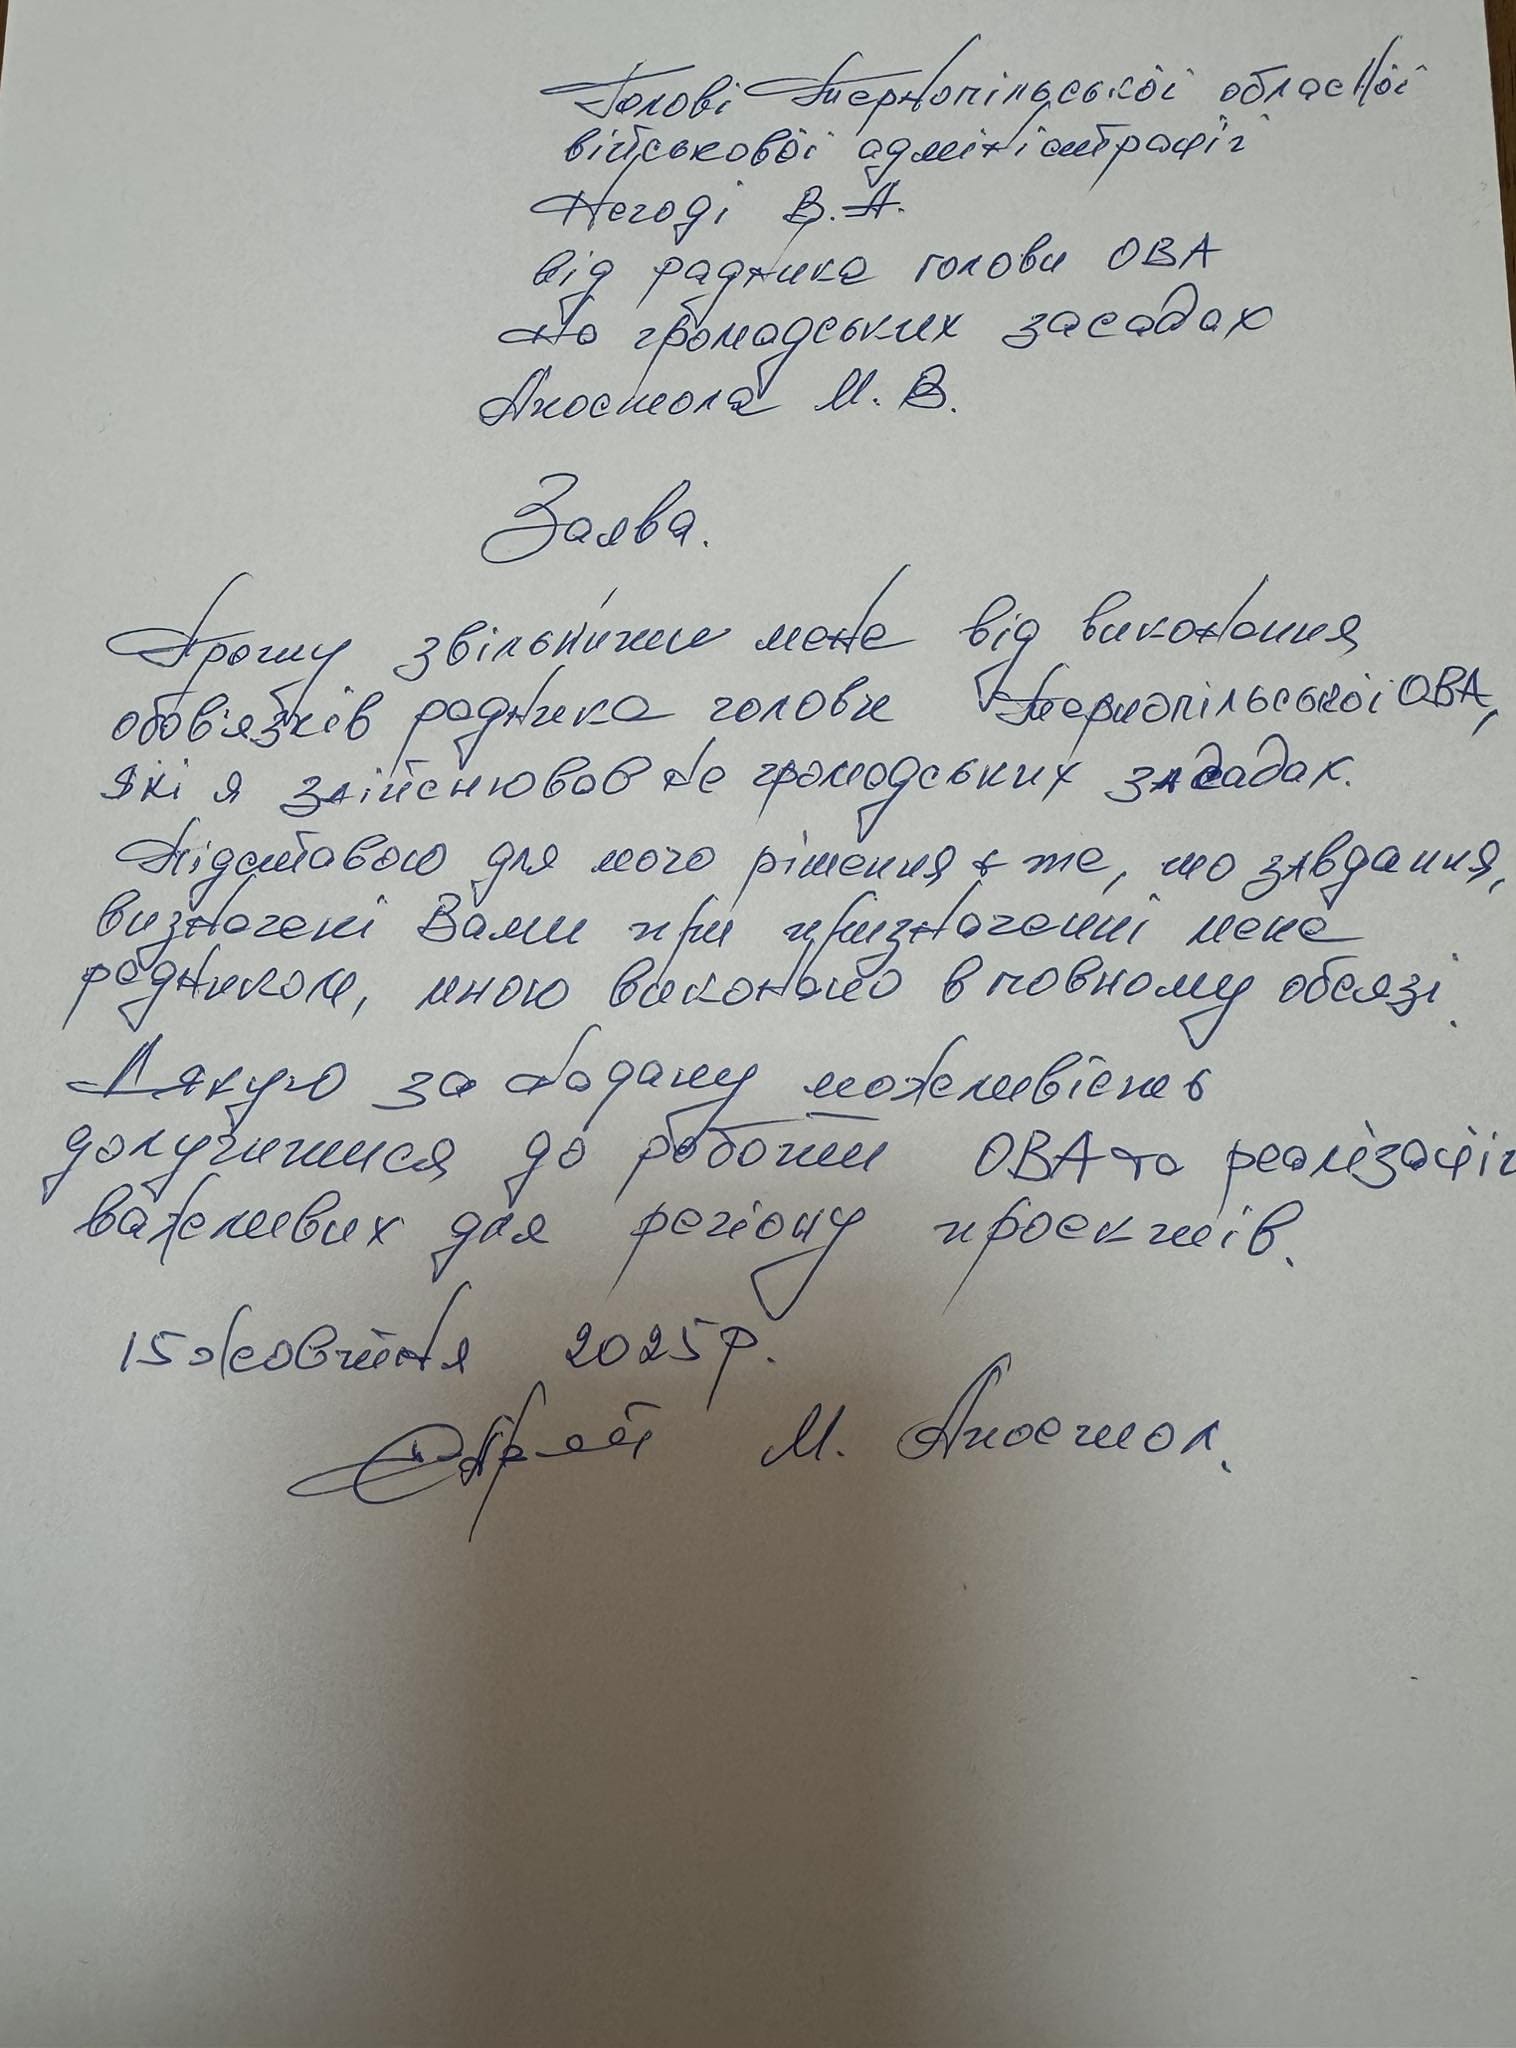 Голові Тернопільської обласної
військової адміністрації
Негоді В. А.
від радника голови ОВА
на громадських засадах
Апостола М. В.
Заява.
Прошу звільнити мене від виконання
обов'язків радника голови Тернопільської ОВА,
які я здійснював на громадських засадах.
Підставою для мого рішення є те, що завдання,
визначені Вами при призначенні мене
радником, мною виконано в повному обсязі.
Дякую за надану можливість
долучитися до роботи ОВА та реалізації
важливих для регіону проектів.
15 жовтня 2025 р.
М. Апостол.